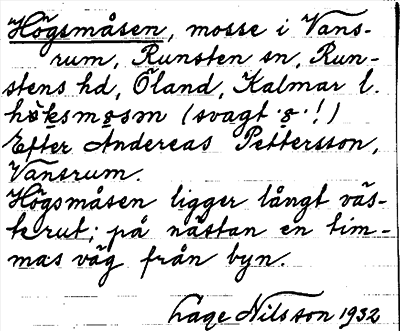 Högsmåsen, mosse i Vans-
rum, Runsten sn, Run-
stens hd, Öland, Kalmar l.
høksmosm (svagt ·s·!)
Efter Andereas Pettersson,
Vansrum.
Högsmåsen ligger långt väs-
terut; på nästan en tim-
mas väg från byn.
Låge Nilsson 1932